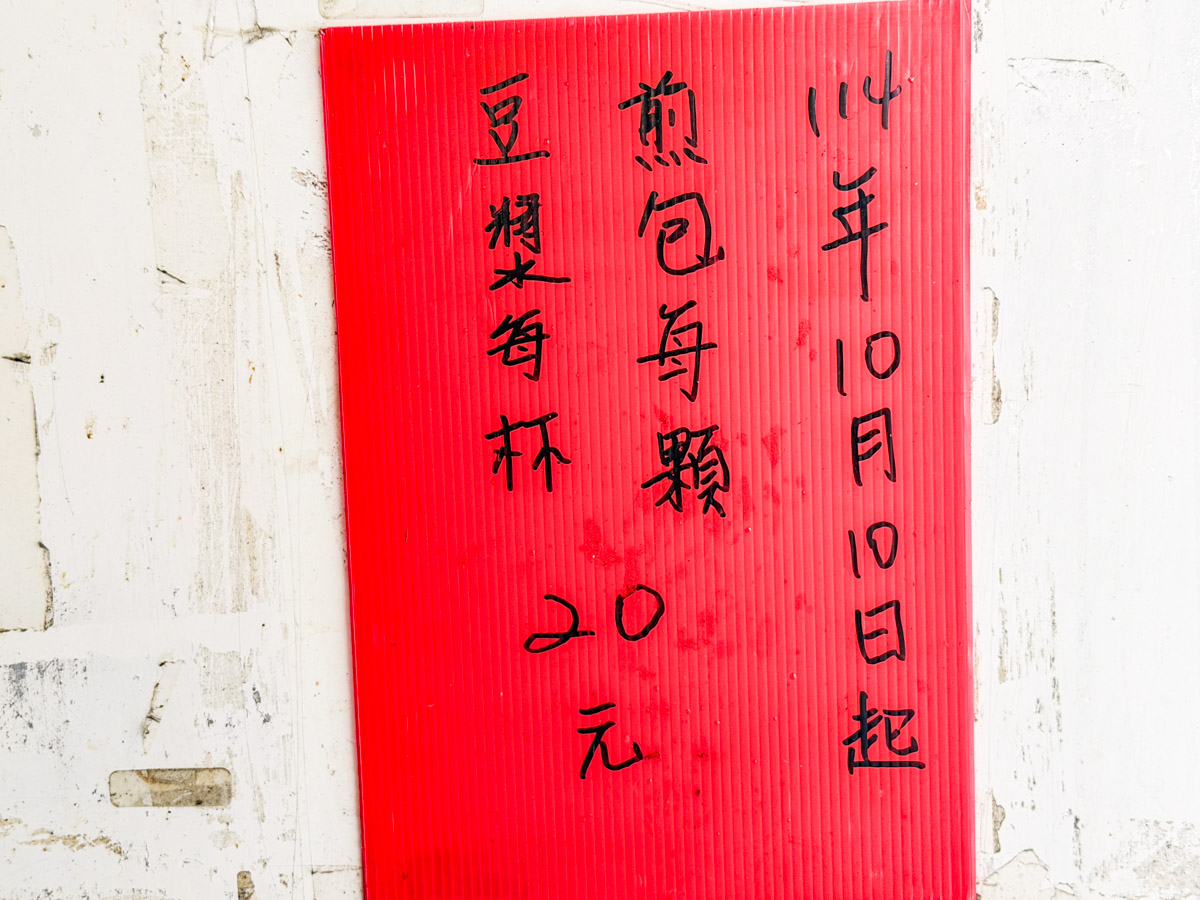 114年10月10日起
煎包每顆
豆漿每杯
20元